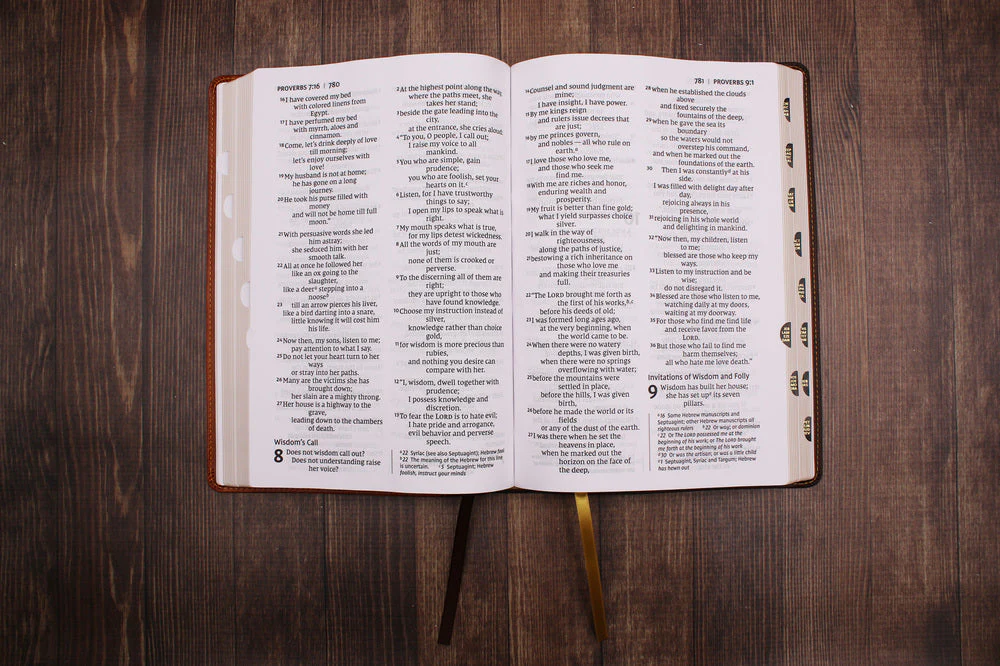 PROVERBS 7:16 | 780
16 I have covered my bed
with colored linens from
Egypt.
17 I have perfumed my bed
with myrrh, aloes and
cinnamon.
18 Come, let's drink deeply of love
till morning;
let's enjoy ourselves with
love!
19 My husband is not at home;
he has gone on a long
journey.
20 He took his purse filled with
money
and will not be home till full
moon."
21 With persuasive words she led
him astray;
she seduced him with her
smooth talk.
22 All at once he followed her
like an ox going to the
slaughter,
like a deer a stepping into a
noose b
23 till an arrow pierces his liver,
like a bird darting into a snare,
little knowing it will cost him
his life.
24 Now then, my sons, listen to me;
pay attention to what I say.
25 Do not let your heart turn to her
ways
or stray into her paths.
26 Many are the victims she has
brought down;
her slain are a mighty throng.
27 Her house is a highway to the
grave,
leading down to the chambers
of death.
Wisdom's Call
8 Does not wisdom call out?
Does not understanding raise
her voice?
2 At the highest point along the way,
where the paths meet, she
takes her stand;
3 beside the gate leading into the
city,
at the entrance, she cries aloud:
4 "To you, O people, I call out;
I raise my voice to all
mankind.
5 You who are simple, gain
prudence;
you who are foolish, set your
hearts on it. c
6 Listen, for I have trustworthy
things to say;
I open my lips to speak what is
right.
7 My mouth speaks what is true,
for my lips detest wickedness.
8 All the words of my mouth are
just;
none of them is crooked or
perverse.
9 To the discerning all of them are
right;
they are upright to those who
have found knowledge.
10 Choose my instruction instead of
silver,
knowledge rather than choice
gold,
11 for wisdom is more precious than
rubies,
and nothing you desire can
compare with her.
12 "I, wisdom, dwell together with
prudence;
I possess knowledge and
discretion.
13 To fear the LORD is to hate evil;
I hate pride and arrogance,
evil behavior and perverse
speech.
a 22 Syriac (see also Septuagint); Hebrew fool
b 22 The meaning of the Hebrew for this line
is uncertain. c 5 Septuagint; Hebrew
foolish, instruct your minds
781 | PROVERBS 9:1
14 Counsel and sound judgment are
mine;
I have insight, I have power.
15 By me kings reign
and rulers issue decrees that
are just;
16 by me princes govern,
and nobles — all who rule on
earth. a
17 I love those who love me,
and those who seek me
find me.
18 With me are riches and honor,
enduring wealth and
prosperity.
19 My fruit is better than fine gold;
what I yield surpasses choice
silver.
20 I walk in the way of
righteousness,
along the paths of justice,
21 bestowing a rich inheritance on
those who love me
and making their treasuries
full.
22 "The LORD brought me forth as
the first of his works, b,c
before his deeds of old;
23 I was formed long ages ago,
at the very beginning, when
the world came to be.
24 When there were no watery
depths, I was given birth,
when there were no springs
overflowing with water;
25 before the mountains were
settled in place,
before the hills, I was given
birth,
26 before he made the world or its
fields
or any of the dust of the earth.
27 I was there when he set the
heavens in place,
when he marked out the
horizon on the face of
the deep,
28 when he established the clouds
above
and fixed securely the
fountains of the deep,
29 when he gave the sea its
boundary
so the waters would not
overstep his command,
and when he marked out the
foundations of the earth.
30 Then I was constantly d at his
side.
I was filled with delight day after
day,
rejoicing always in his
presence,
31 rejoicing in his whole world
and delighting in mankind.
32 "Now then, my children, listen
to me;
blessed are those who keep my
ways.
33 Listen to my instruction and be
wise;
do not disregard it.
34 Blessed are those who listen to me,
watching daily at my doors,
waiting at my doorway.
35 For those who find me find life
and receive favor from the
LORD.
36 But those who fail to find me
harm themselves;
all who hate me love death."
Invitations of Wisdom and Folly
9 Wisdom has built her house;
she has set up e its seven
pillars.
a 16 Some Hebrew manuscripts and
Septuagint; other Hebrew manuscripts all
righteous rulers b 22 Or way; or dominion
c 22 Or The LORD possessed me at the
beginning of his work; or The LORD brought
me forth at the beginning of his work
d 30 Or was the artisan; or was a little child
e 1 Septuagint, Syriac and Targum; Hebrew
has hewn out